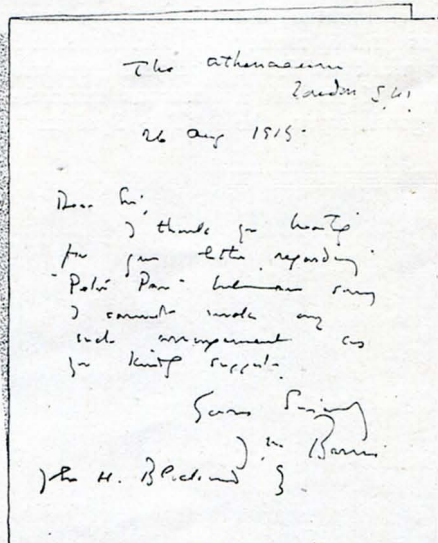 The Athenaeum
London S.W.
26 Aug 1915.
Dear Sir,
I thank you heartily
for your letter regarding
"Peter Pan" but am sorry
I cannot make any
such arrangement as
you kindly suggest.
Yours Sincerely
J. M. Barrie
John H. Esq